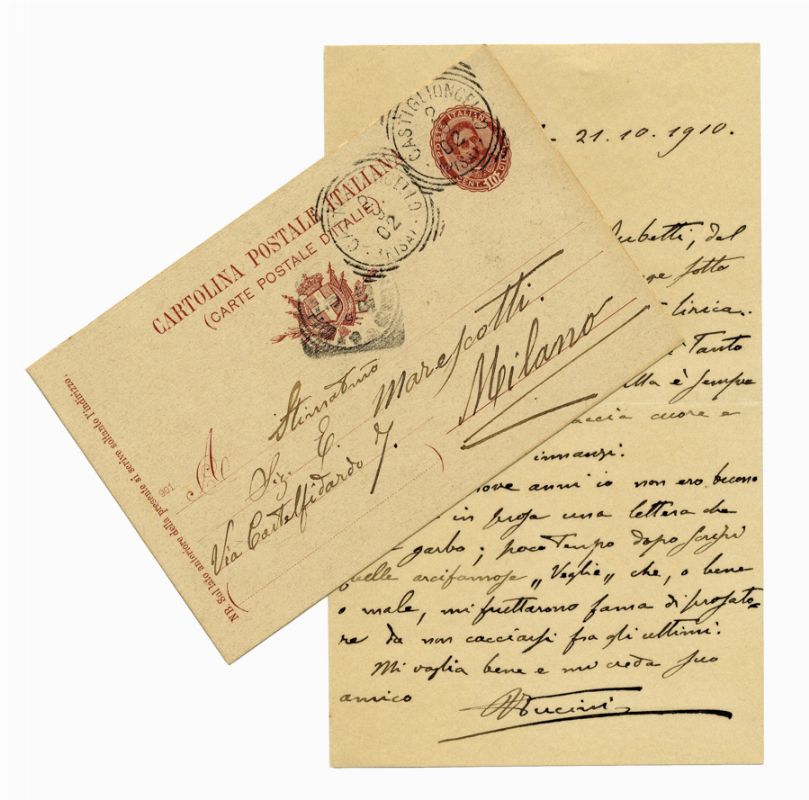 CARTOLINA POSTALE ITALIANA
(CARTE POSTALE D'ITALIE)
POSTE ITALIANE
CENT. 10
CASTIGLIONCELLO
2
02
(PISA)
02
(PISA)
Stimatmo
A Sig. E. Marescotti.
Via Castelfidardo 7.
Milano
NB. Sul lato anteriore della presente si scrive soltanto l'indirizzo.
901
21.10.1910.
ubetti, dal
sotto
lirica.
Tanto
è sempre
accia cuore e
innanzi.
ove anni io non ero buono
in prosa una lettera che
garbo; poco tempo dopo scrissi
quelle arcifamose „Veglie" che, o bene
o male, mi fruttarono fama di prosato-
re da non cacciarsi fra gli ultimi.
Mi voglia bene e mi creda suo
amico
RFucini